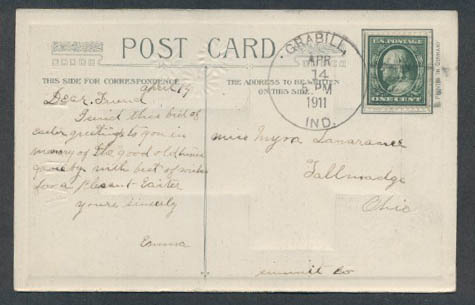 POST CARD
THIS SIDE FOR CORRESPONDENCE
THE ADDRESS TO BE WRITTEN
ON THIS SIDE.
GRABILL,
APR
14
PM
1911
IND.
U.S. POSTAGE
ONE CENT
April 19
Dear Friend
I send this bit of
easter greetings to you in
memory of the good old times
gone by with best of wishes
for a pleasant Easter
yours sincerly
Emma
Miss Myra
Tallmadge
Ohio
summit co